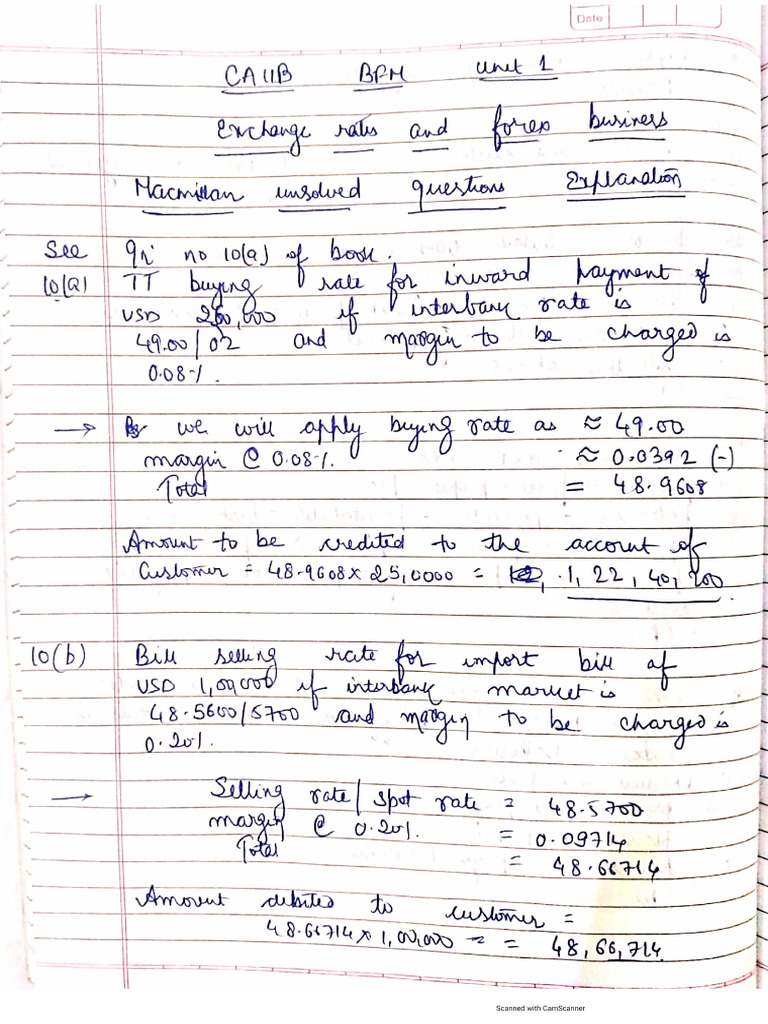 Date
CAIIB BFM Unit 1
Exchange rates and forex business
Macmillan unsolved questions Explanation
See Qn no 10(a) of book.
10(a) TT buying rate for inward payment of
USD 250,000 if interbank rate is
49.00/02 and margin to be charged is
0.08%.
→ we will apply buying rate as ≈ 49.00
margin @ 0.08%. ≈ 0.0392 (-)
Total = 48.9608
Amount to be credited to the account of
Customer = 48.9608 x 25,0000 = 1,22,40,200
10(b) Bill selling rate for import bill of
USD 1,00,000 if interbank market is
48.5600/5700 and margin to be charged is
0.20%.
→ Selling rate/spot rate = 48.5700
margin @ 0.20%. = 0.09714
Total = 48.66714
Amount debited to customer =
48.66714 x 1,00,000 = = 48,66,714
Scanned with CamScanner